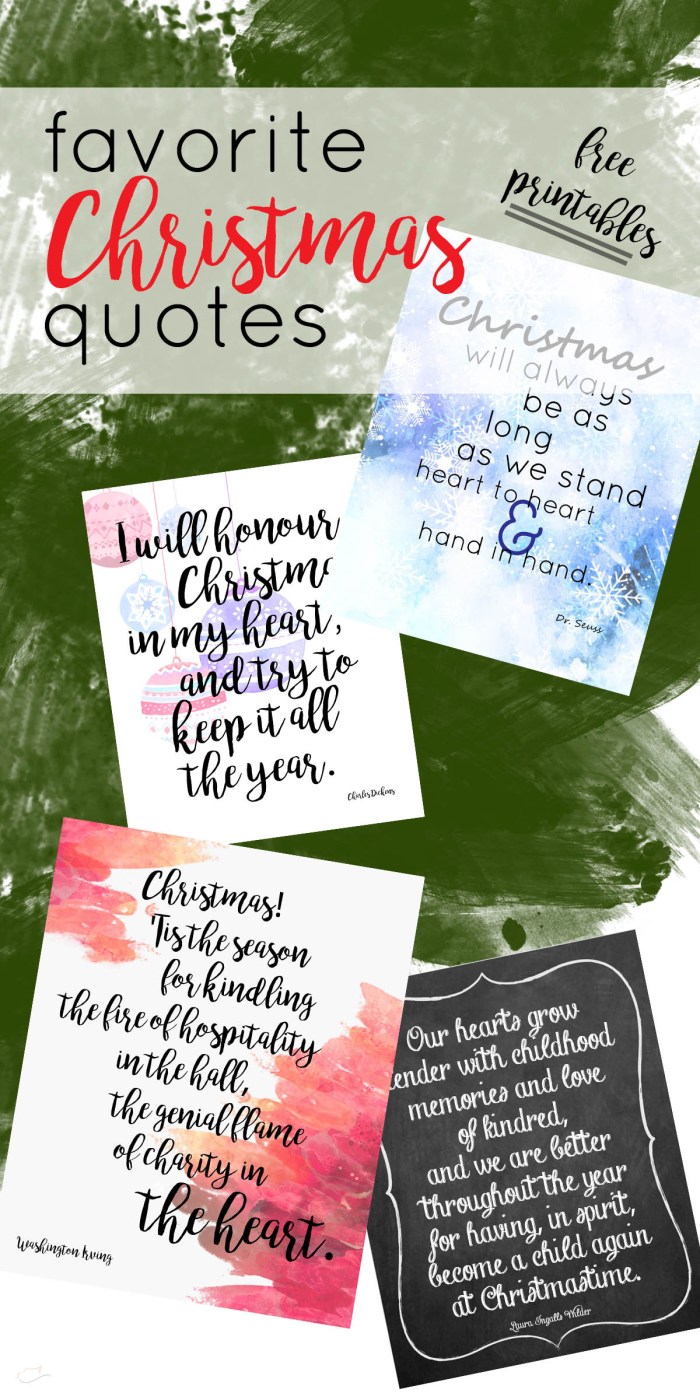 favorite
Christmas
quotes
free
printables
Christmas
will always
be as
long
as we stand
heart to heart
&
hand in hand.
Dr. Seuss
I will honour
Christma
in my heart,
and try to
keep it all
the year.
Charles Dickens
Christmas!
'Tis the season
for kindling
the fire of hospitality
in the hall,
the genial flame
of charity in
the heart.
Washington Irving
Our hearts grow
tender with childhood
memories and love
of kindred,
and we are better
throughout the year
for having, in spirit,
become a child again
at Christmastime.
Laura Ingalls Wilder